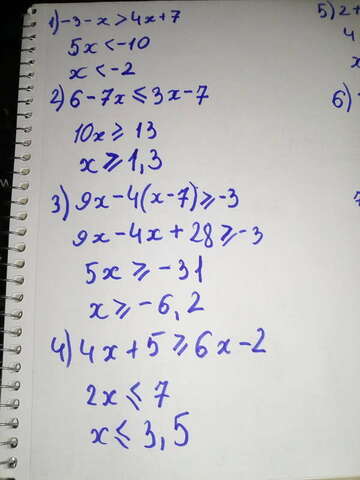 1) -3-x>4x+7
5x<-10
x<-2
2) 6-7x≤3x-7
10x≥13
x≥1,3
3) 9x-4(x-7)≥-3
9x-4x+28≥-3
5x≥-31
x≥-6,2
4) 4x+5≥6x-2
2x≤7
x≤3,5
5) 2+
4
x
6)